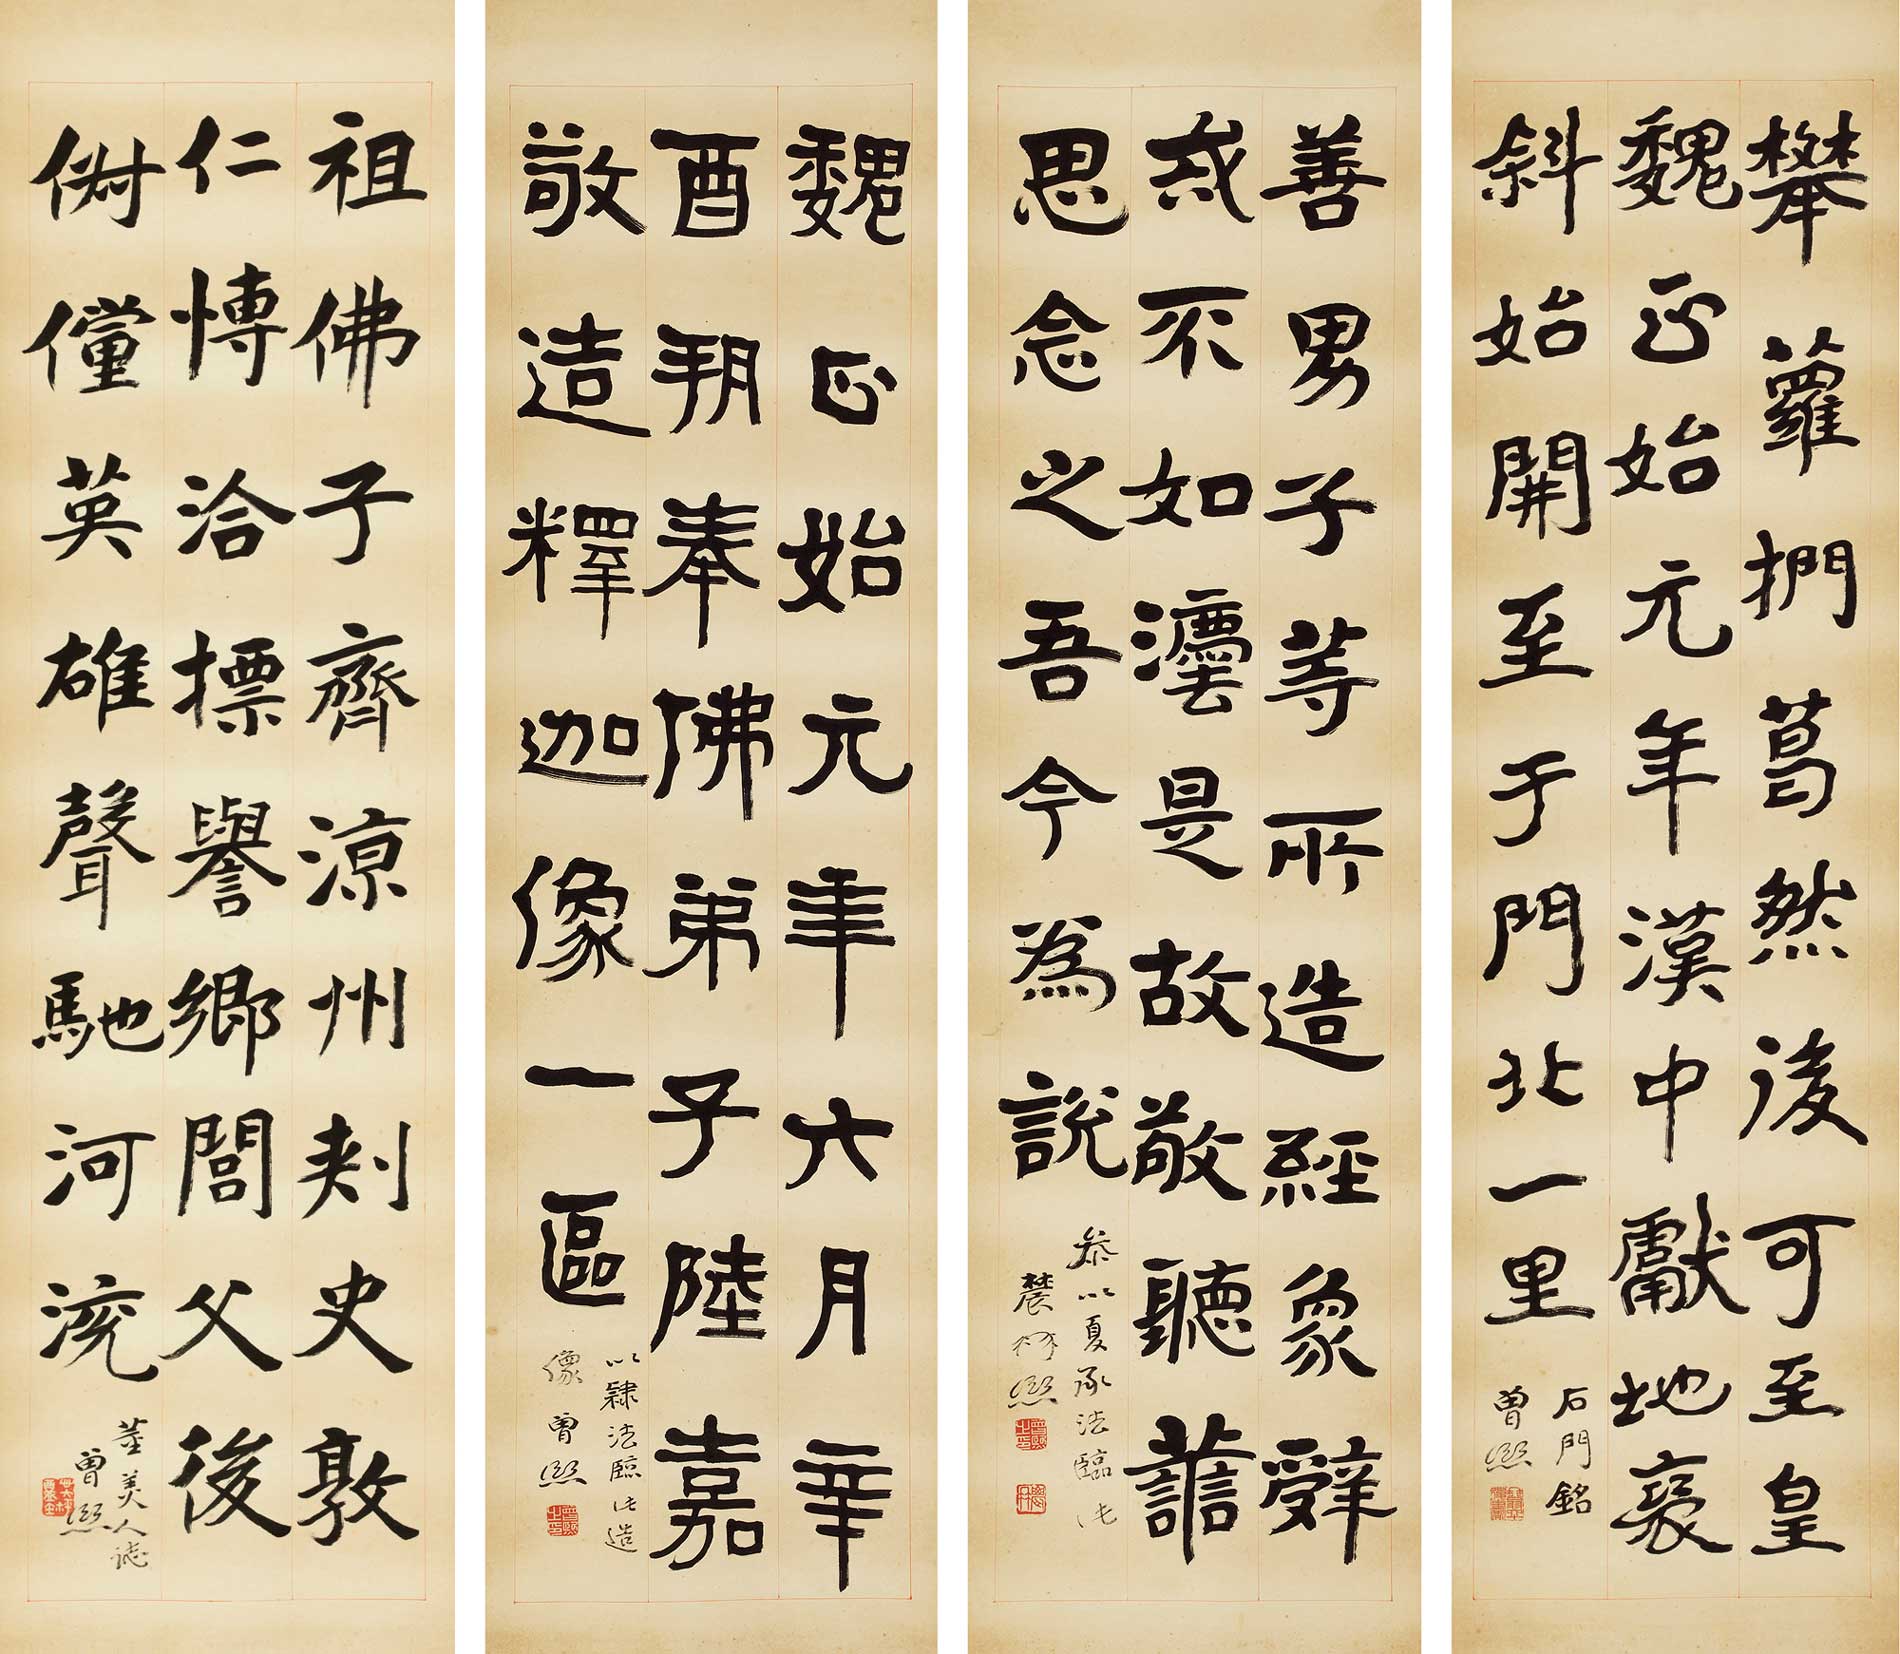 攀蘿捫葛然後可至皇
魏正始元年漢中獻地褒
斜始開至于門北一里
石門銘
曾熙
善男子等所造經象辭
或不如灋是故敬聽
思念之吾今為說
參以夏承法臨此
農髯熙
魏正始元年六月辛
酉朔奉佛弟子陸嘉
敬造釋迦像一區
以隸法臨此造
像 曾熙
祖佛子齊涼州刺史敦
仁愽洽摽譽鄉閭父後
俶儻英雄聲馳河流
董美人誌
曾熙